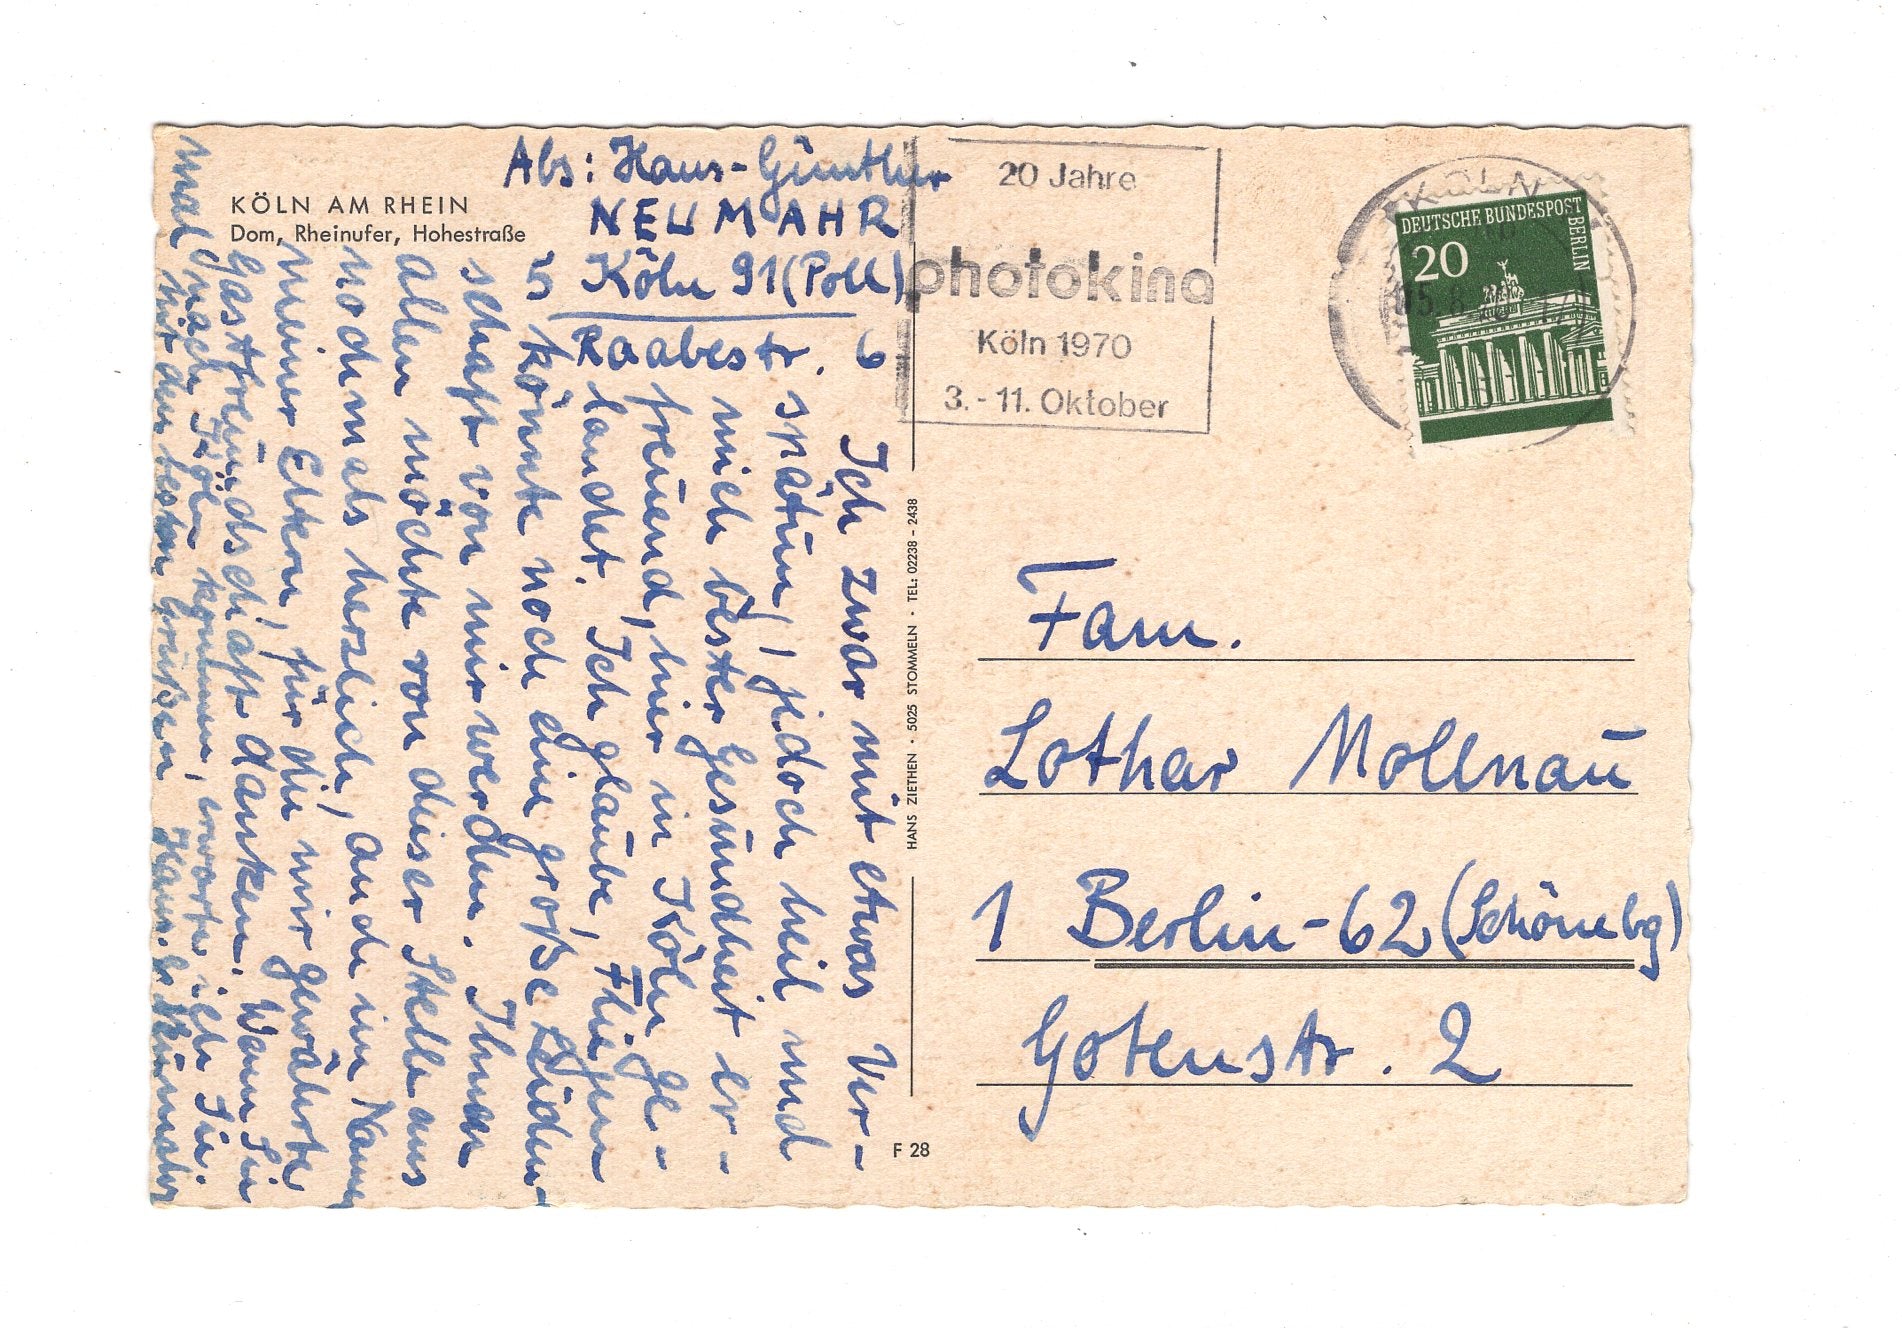 KÖLN AM RHEIN
Dom, Rheinufer, Hohestraße
Abs: Hans-Günther
NEUMAHR
5 Köln 91 (Poll)
Raabestr. 6
Ich zwar mit etwas Ver-
spätung, jedoch heil und
mich bester Gesundheit er-
freuend, hier in Köln ge-
landet. Ich glaube, Fliegen
könnte noch eine große Leiden-
schaft von mir werden. Ihnen
allen möchte von dieser Stelle aus
nochmals herzlich, auch im Namen
meiner Eltern, für die mir gewährte
Gastfreundschaft danken. Wenn Sie
mal nach Köln kommen, erwarte ich Sie.
Mit den besten Grüßen Hans-G. Neumahr
20 Jahre
photokina
Köln 1970
3. - 11. Oktober
KÖLN
DEUTSCHE BUNDESPOST
BERLIN
20
HANS ZIETHEN · 5025 STOMMELN · TEL: 02238 - 2438
F 28
Fam.
Lothar Mollnau
1 Berlin-62 (Schönebg)
Gotenstr. 2